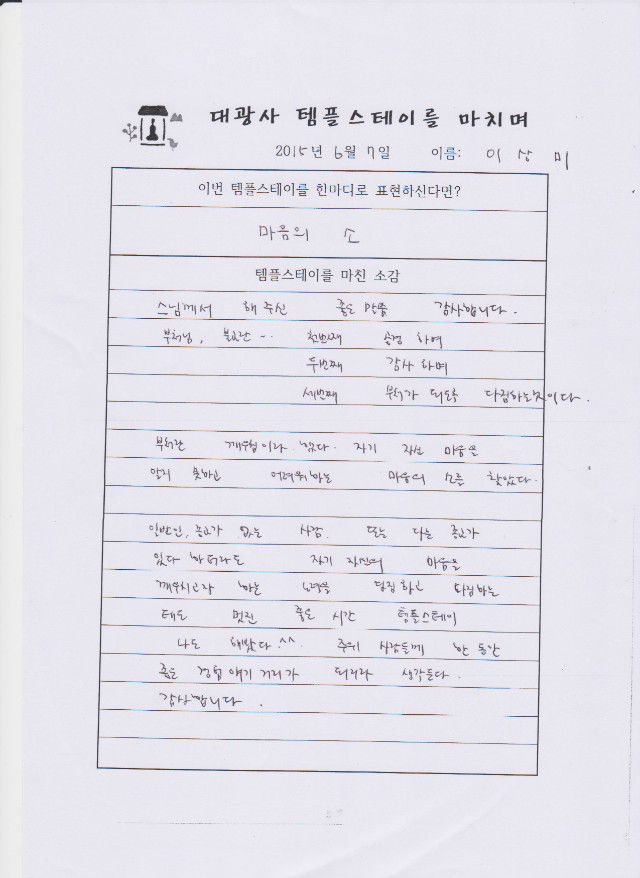 대광사 템플스테이를 마치며
2015년 6월 7일 이름: 이 상 미
이번 템플스테이를 한마디로 표현하신다면?
마음의 소
템플스테이를 마친 소감
스님께서 해주신 좋은 말씀 감사합니다.
부처님, 불교란 -- 첫번째 존경 하며
두번째 감사 하며
세번째 부처가 되도록 다짐하는 것이다.
부처란 깨우침이라 했다. 자기 자신 마음을
알지 못하고 어려워하는 마음의 소를 찾았다.
일반인, 종교가 없는 사람. 또는 다른 종교가
있다 하더라도 자기 자신의 마음을
깨우치고자 하는 노력을 다짐하는
태도 멋진 좋은 시간 템플스테이
나도 해봤다.^^. 주위 사람들께 한 동안
좋은 경험 얘기 거리가 되리라 생각든다.
감사합니다.